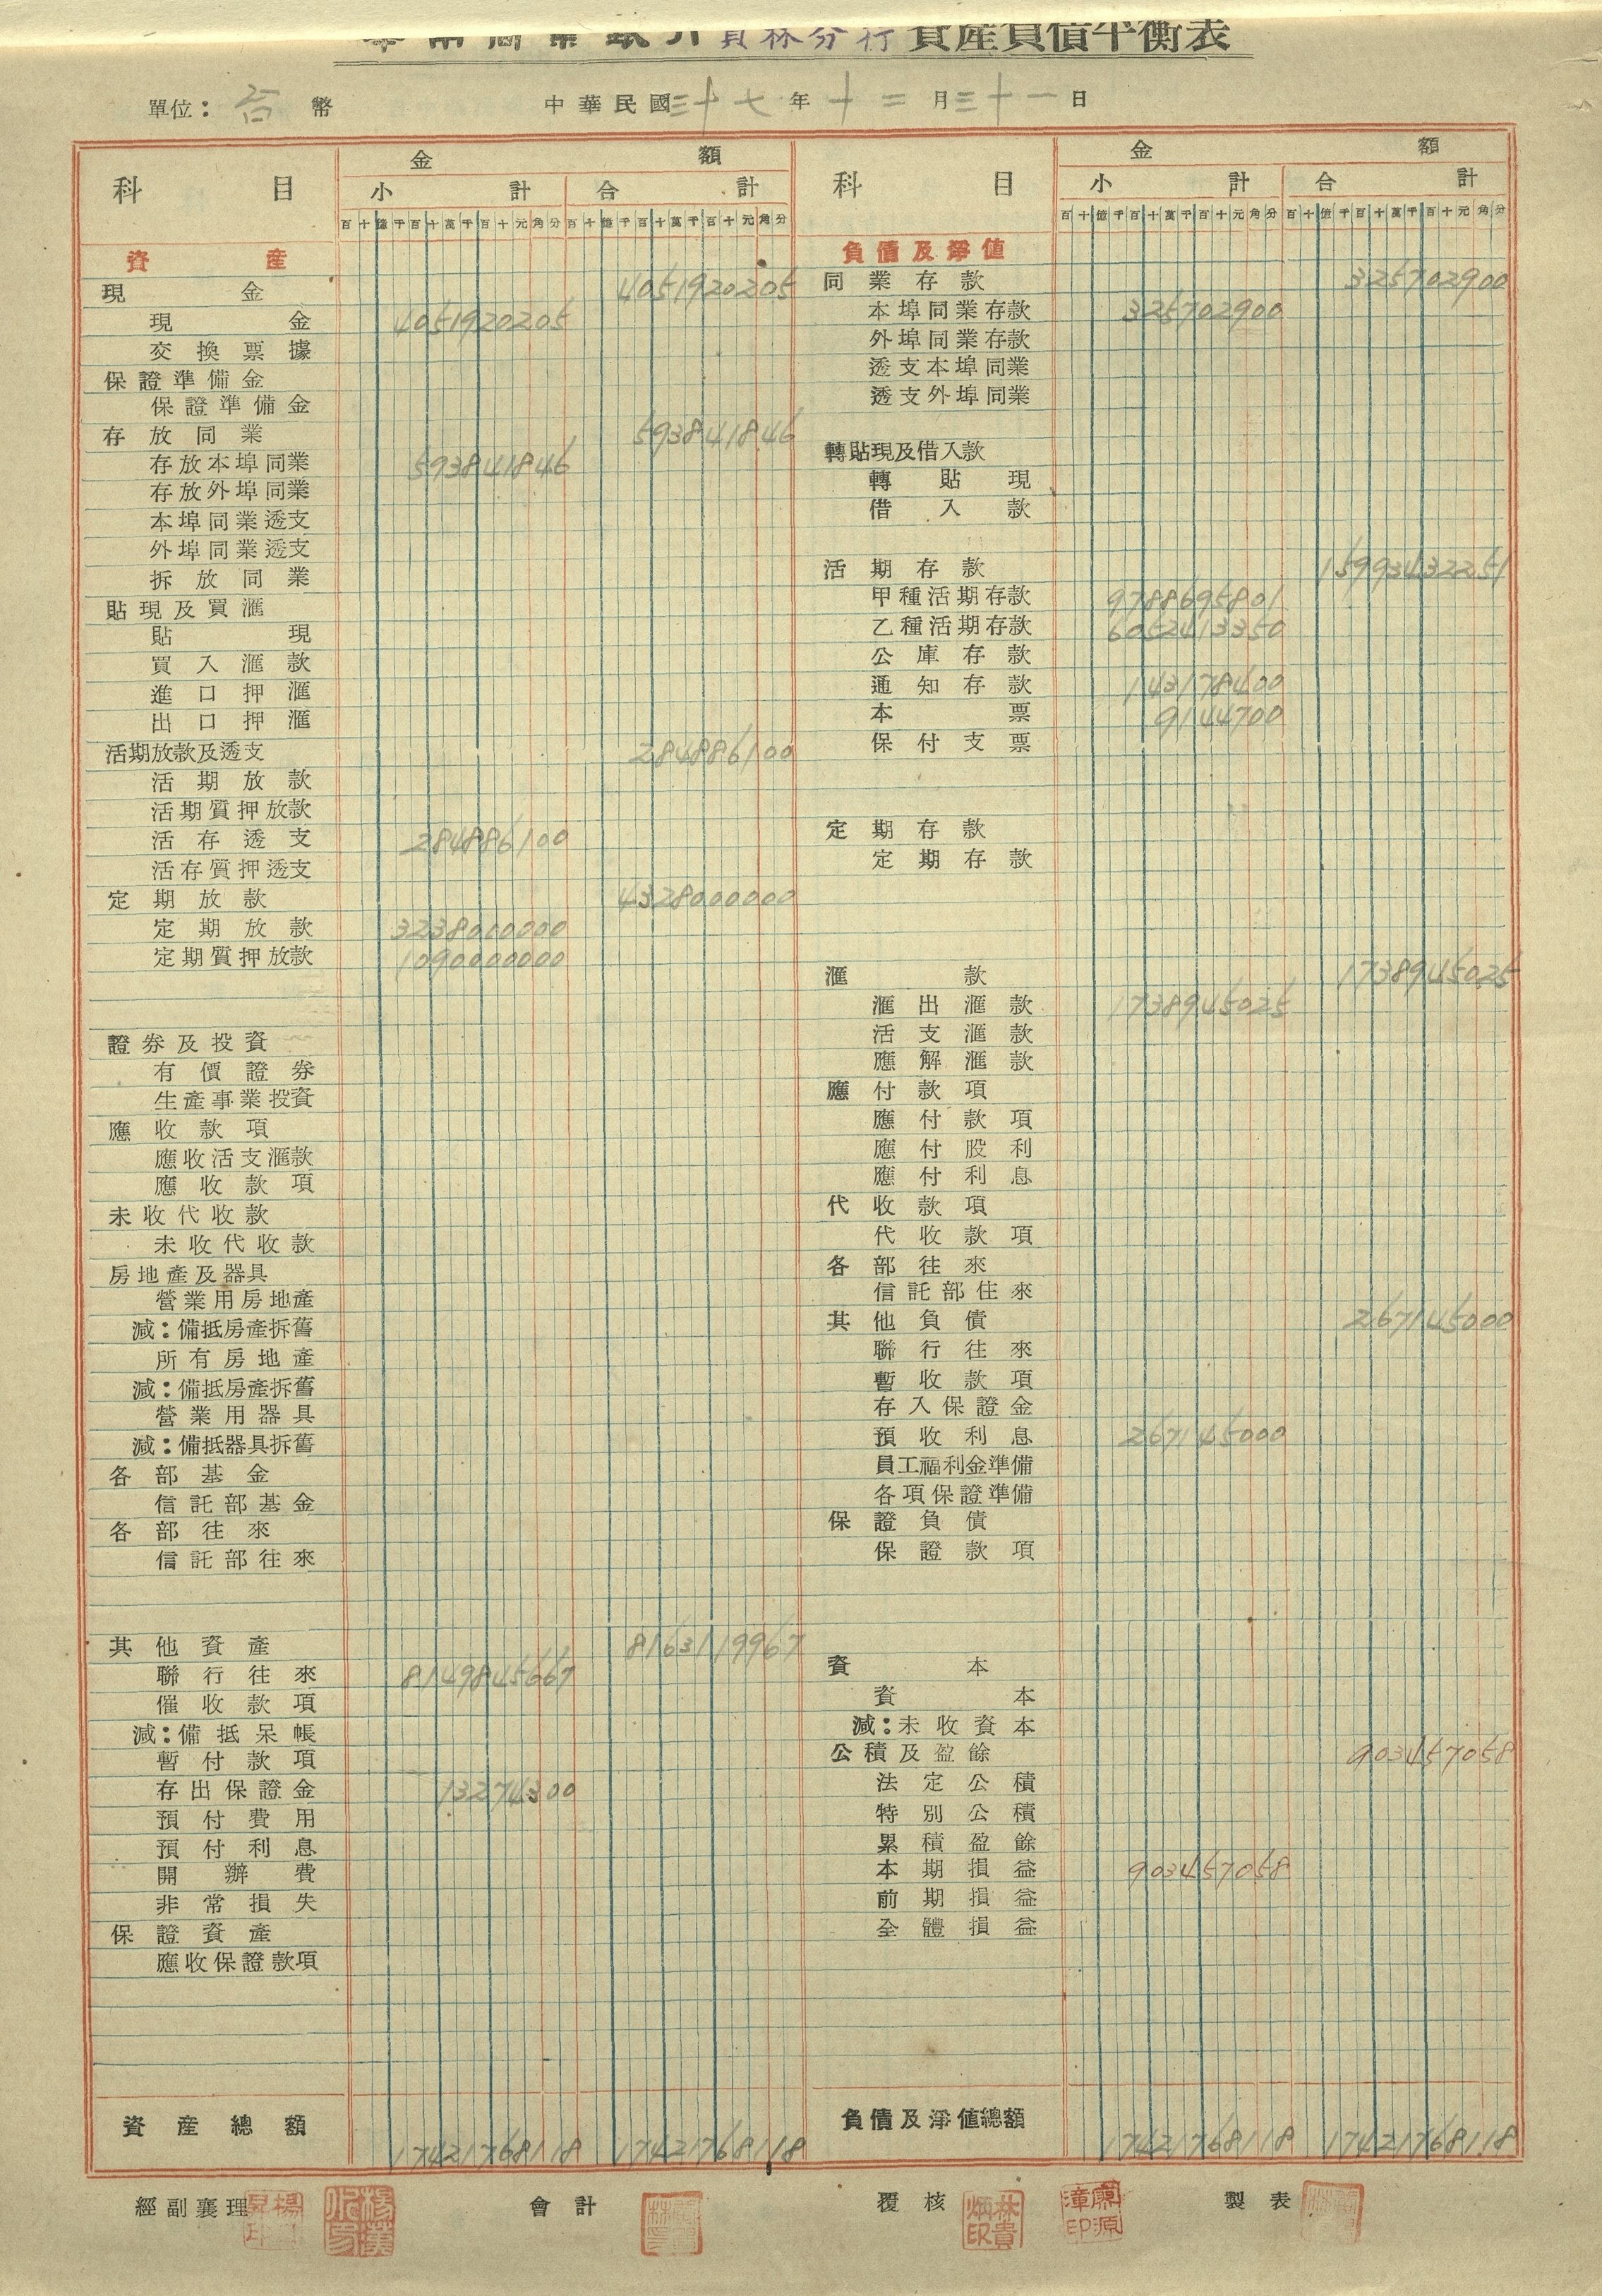 華南商業銀行員林分行資產負債平衡表
單位：台幣 中華民國三十七年十二月三十一日
科目 金額
小計 合計
百十億千百十萬千百十元角分 百十億千百十萬千百十元角分
資產
現金 4051920205
現金 4051920205
交換票據
保證準備金
保證準備金
存放同業 593841846
存放本埠同業 593841846
存放外埠同業
本埠同業透支
外埠同業透支
拆放同業
貼現及買滙
貼現
買入滙款
進口押滙
出口押滙
活期放款及透支 284886100
活期放款
活期質押放款
活存透支 284886100
活存質押透支
定期放款 4328000000
定期放款 3238000000
定期質押放款 1090000000
證券及投資
有價證券
生產事業投資
應收款項
應收活支滙款
應收款項
未收代收款
未收代收款
房地產及器具
營業用房地產
減：備抵房產拆舊
所有房地產
減：備抵房產拆舊
營業用器具
減：備抵器具拆舊
各部基金
信託部基金
各部往來
信託部往來
其他資產 8163119967
聯行往來 8149845667
催收款項
減：備抵呆帳
暫付款項
存出保證金 13274300
預付費用
預付利息
開辦費
非常損失
保證資產
應收保證款項
資產總額 17421768118 17421768118
科目 金額
小計 合計
百十億千百十萬千百十元角分 百十億千百十萬千百十元角分
負債及淨值
同業存款 325702900
本埠同業存款 325702900
外埠同業存款
透支本埠同業
透支外埠同業
轉貼現及借入款
轉貼現
借入款
活期存款 15993432251
甲種活期存款 9788695801
乙種活期存款 6052413350
公庫存款
通知存款 143178400
本票 9144700
保付支票
定期存款
定期存款
滙款 1738945025
滙出滙款 1738945025
活支滙款
應解滙款
應付款項
應付款項
應付股利
應付利息
代收款項
代收款項
各部往來
信託部往來
其他負債 267145000
聯行往來
暫收款項
存入保證金
預收利息 267145000
員工福利金準備
各項保證準備
保證負債
保證款項
資本
資本
減：未收資本
公積及盈餘 903457058
法定公積
特別公積
累積盈餘
本期損益 903457058
前期損益
全體損益
負債及淨值總額 17421768118 17421768118
經副襄理 會計 覆核 林貴炳印 廖源漳印 製表